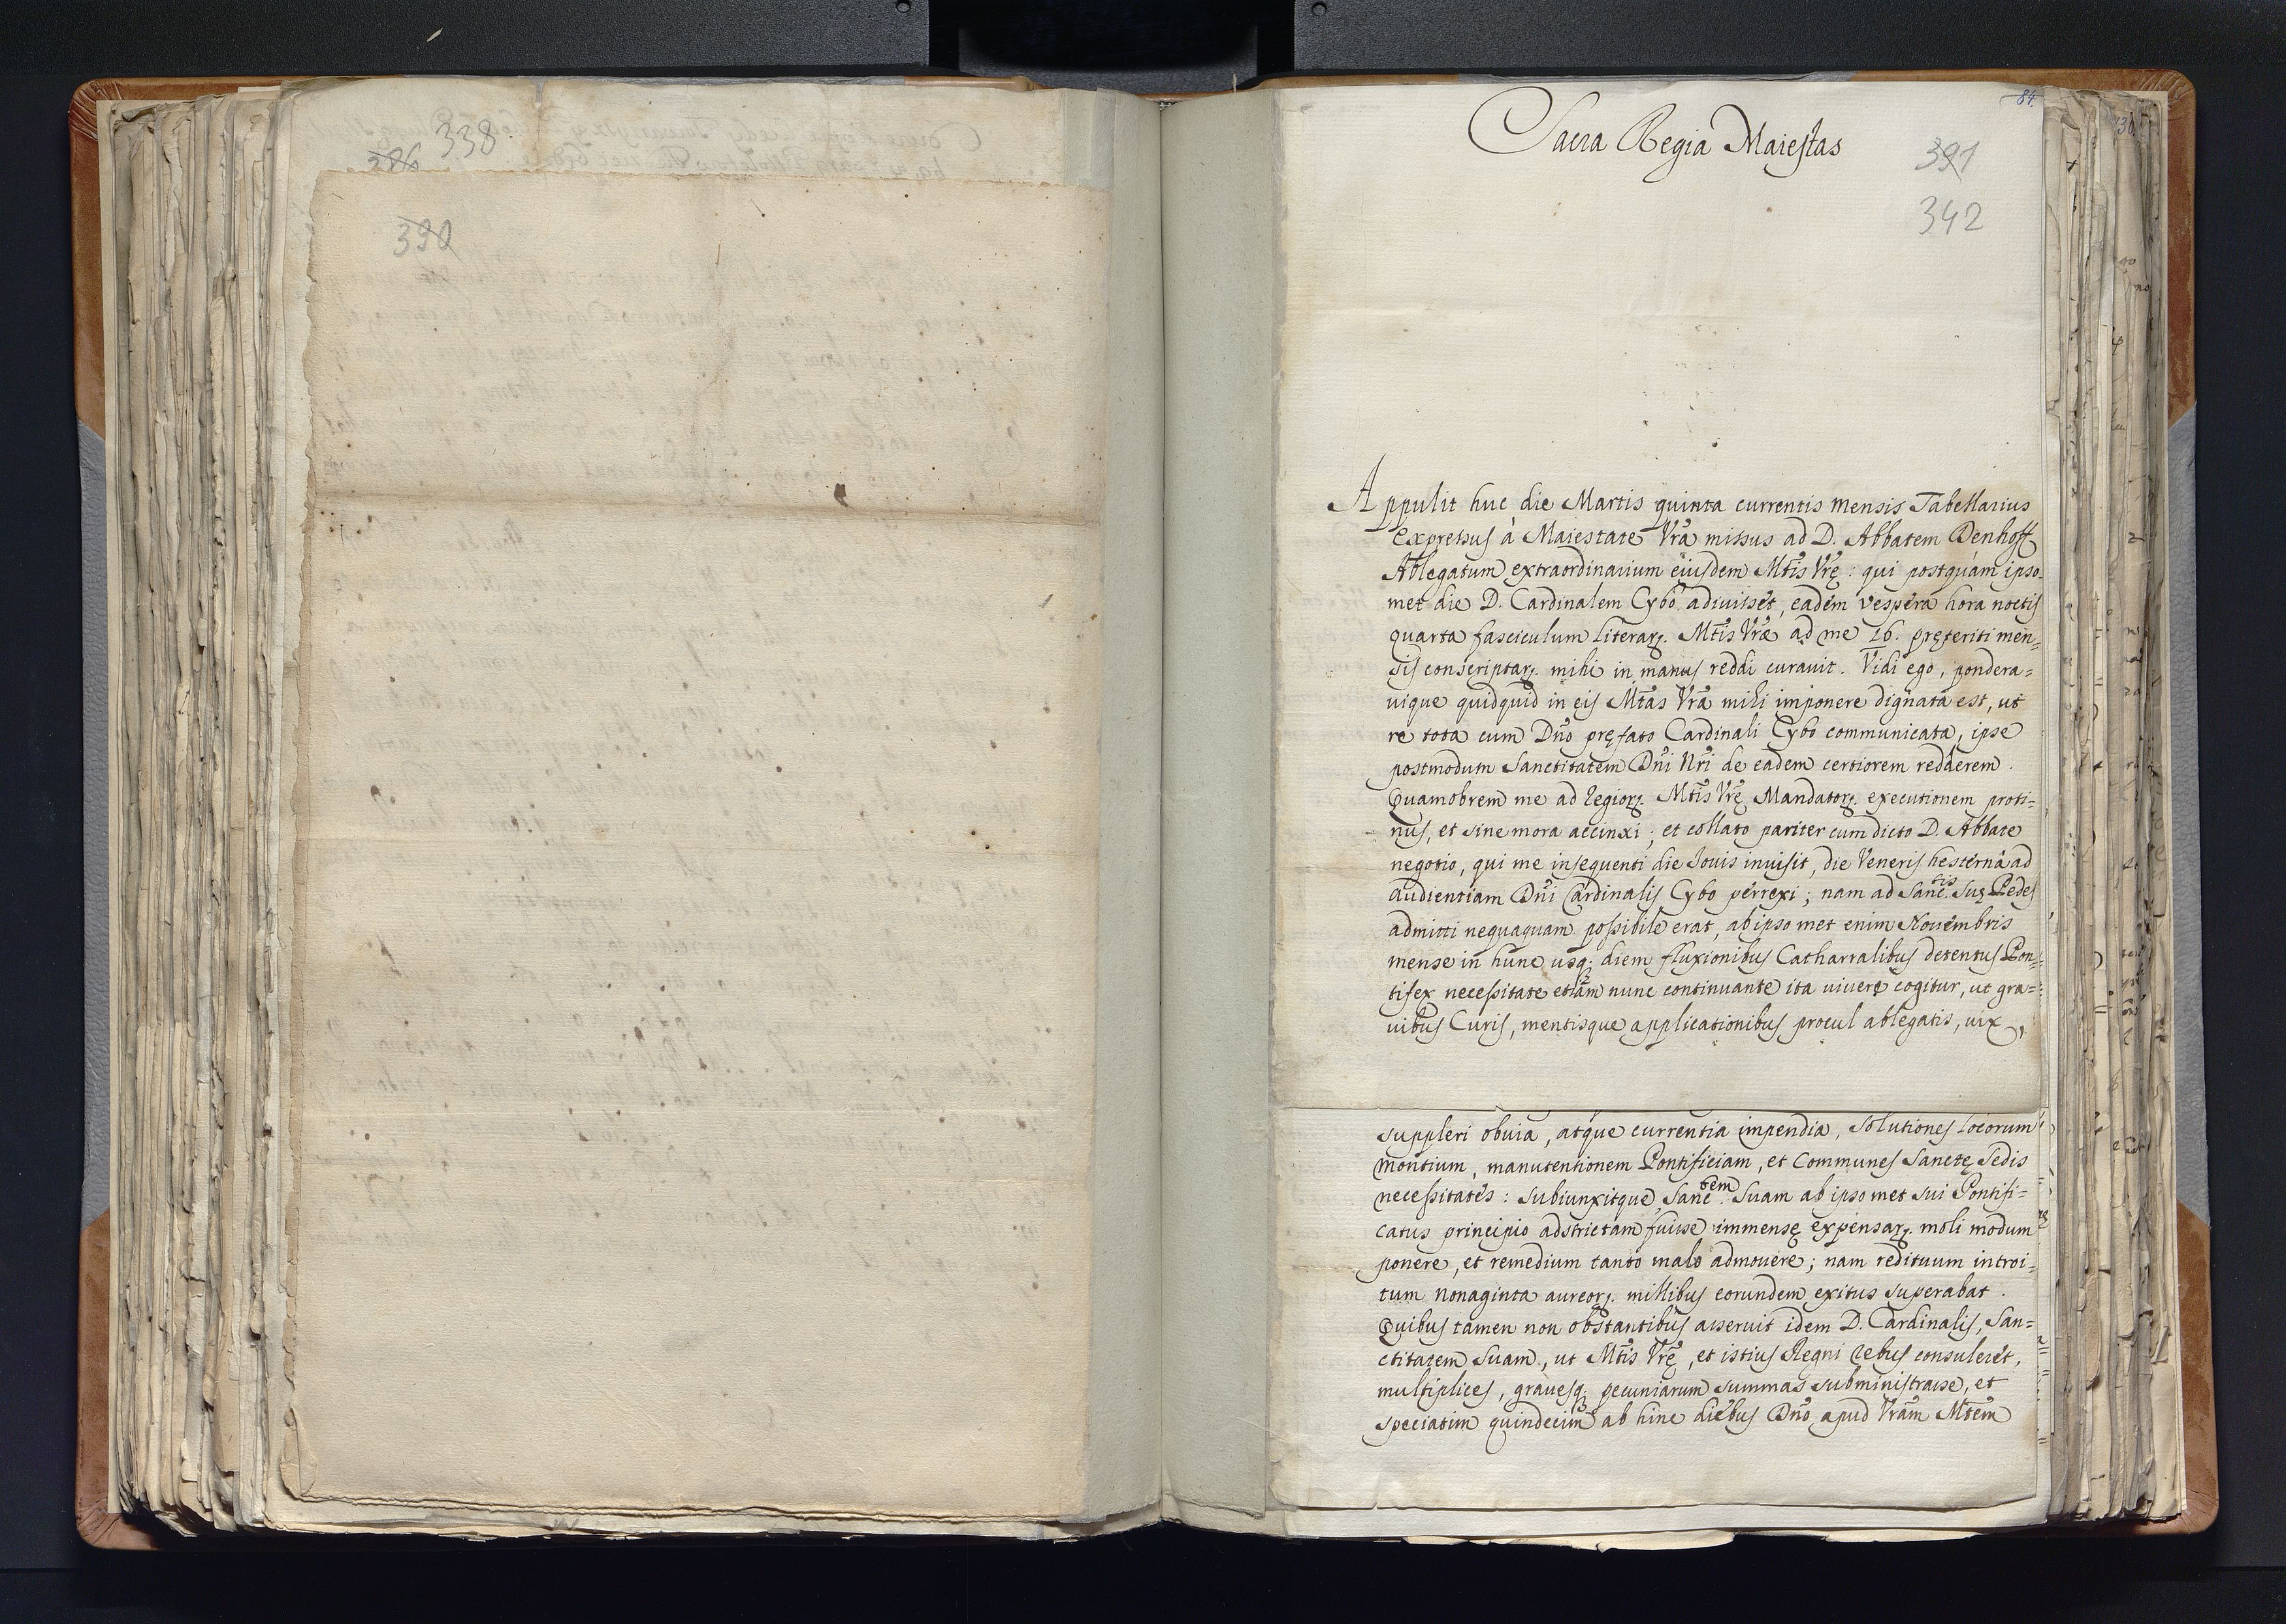 338
286
390
84.
Sacra Regia Maiestas
391
342
Appulit huc die Martis quinta currentis mensis Tabellarius
expressus à Maiestate Vrã missus ad D. Abbatem Denhoff
Ablegatum extraordinarium eiusdem Mtis Vrę : qui postquam ipso
met die D. Cardinalem Cybo adiuisset, eadem vespera hora noctis
quarta fasciculum literarꝫ. Mtis Vræ ad me 16. pręteriti men=
sis conscriptarꝫ. mihi in manus reddi curauit. Vidi ego, pondera=
uique quidquid in eis Mtas Vrã mihi imponere dignata est, ut
re tota cum Dño pręfato Cardinali Cybo communicata, ipse
postmodum Sanctitatem Dñi Nri de eadem certiorem redderem.
Quamobrem me ad regiorꝫ. Mtis Vrę Mandatorꝫ. executionem proti=
nus, et sine mora accinxi; et collato pariter cum dicto D. Abbate
negotio, qui me insequenti die Iouis inuisit, die Veneris hesterna ad
audientiam Dñi Cardinalis Cybo perrexi; nam ad Sanc.tis Suę Pedes
admitti nequaquam possibile erat, ab ipso met enim Nouembris
mense in hunc usq; diem fluxionibus Catharralibus detentus Pon=
tifex necessitate etiam nunc continuante ita uiuere cogitur, ut gra=
uibus Curis, mentisque applicationibus procul ablegatis, uix,
suppleri obuia, atque currentia impendia, solutiones locorum
montium, manutentionem Pontificiam, et Communes Sanctę Sedis
necessitates: subiunxitque, Sanc.tem Suam ab ipso met sui Pontifi=
catus principio adstrictam fuisse immensę expensarꝫ. moli modum
ponere, et remedium tanto malo admouere; nam redituum introi=
tum nonaginta aureorꝫ. millibus eorundem exitus superabat.
Quibus tamen non obstantibus asseruit idem D. Cardinalis, San=
ctitatem Suam, ut Mtis Vrę, et istius Regni rebus consuleret,
multiplices, grauesq; pecuniarum summas subministrasse, et
speciatim quindecim ab hinc diebus Dño apud Vrãm Mtem